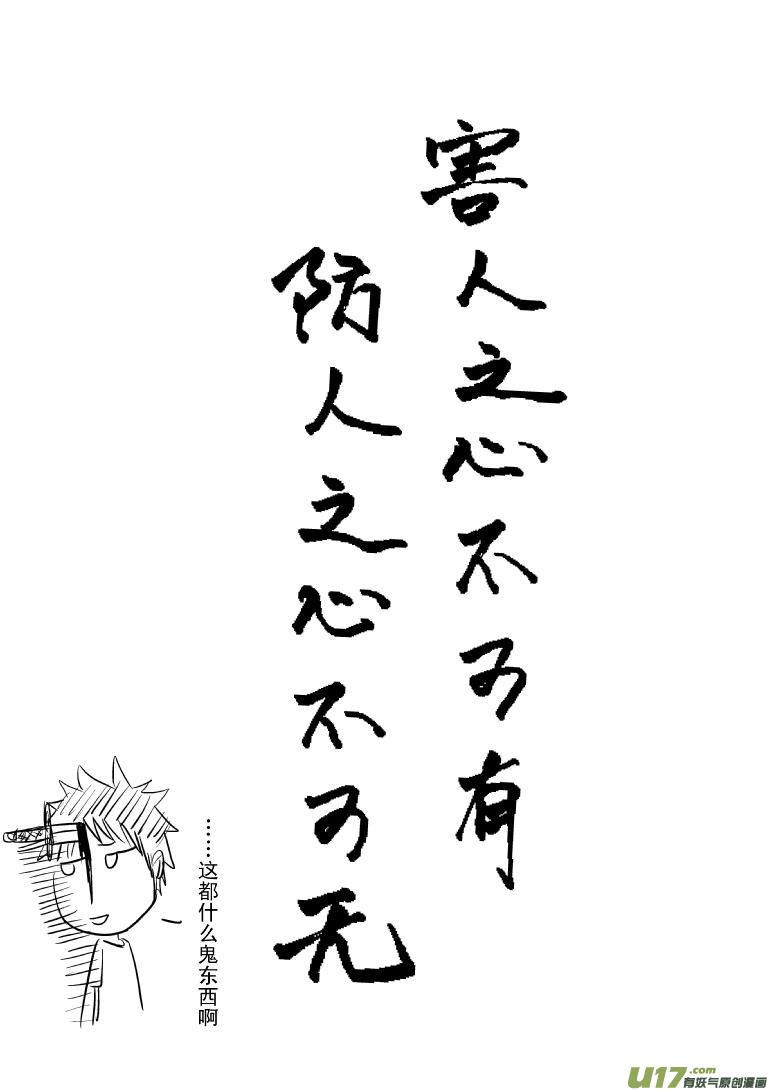 害人之心不可有
防人之心不可无
……这都什么鬼东西啊
U17.com
有妖气原创漫画